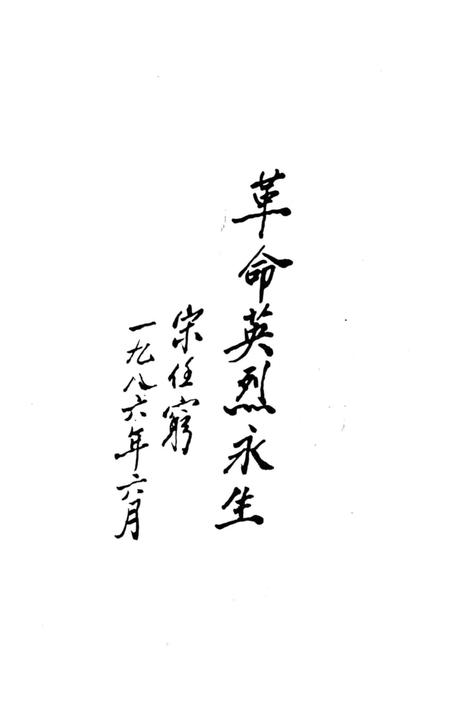 革命英烈永生
宋任穷
一九八六年六月